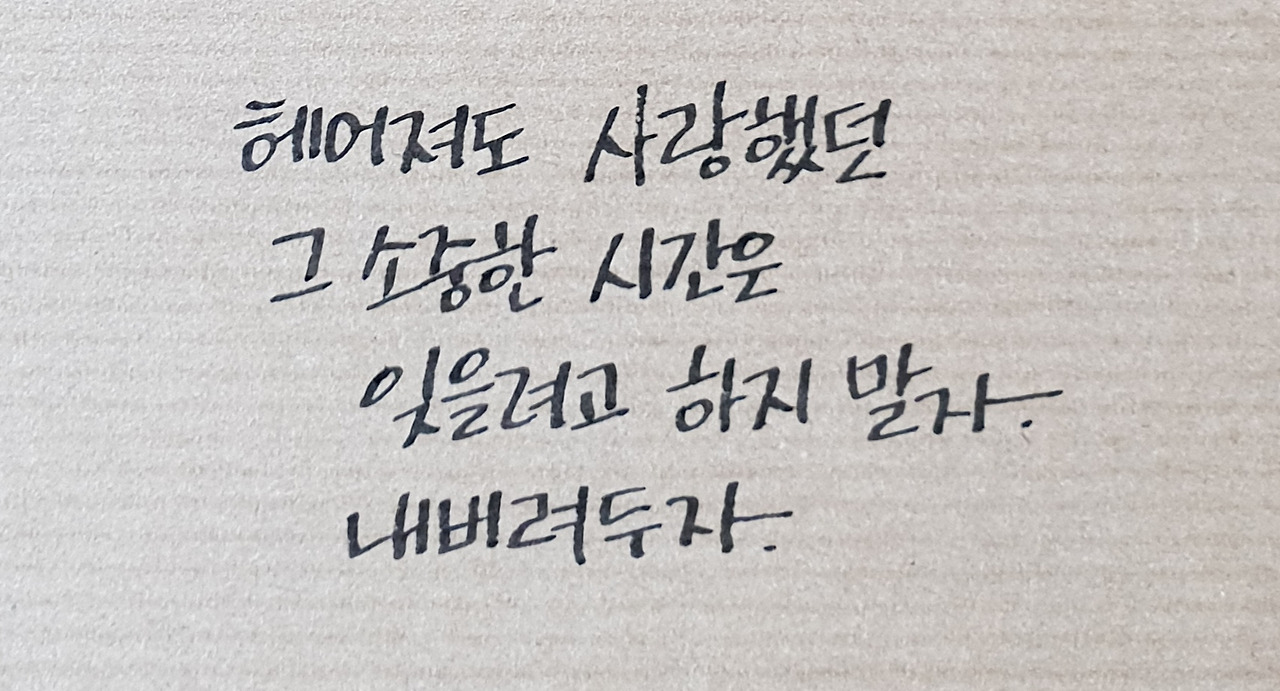 헤어져도 사랑했던
그 소중한 시간은
잊을려고 하지 말자.
내버려두자.